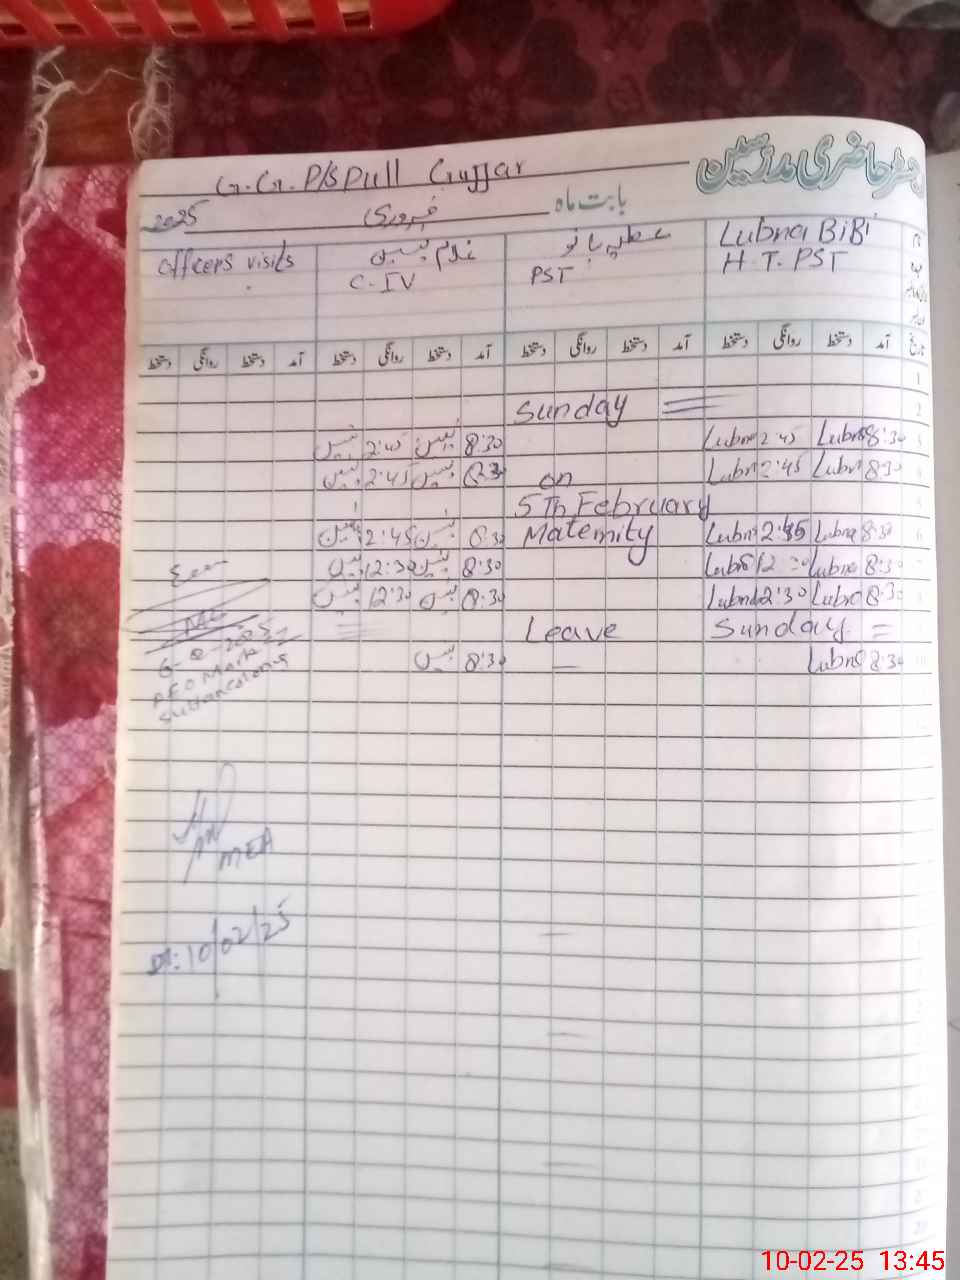 رجسٹر حاضری مدرسین
G.G.P/S Pull Gujjar
بابت ماہ فروری 2025
Lubna BiBi عطیہ بانو غلام یٰسین officers visits
H.T.PST PST C-IV
تاریخ آمد دستخط روانگی دستخط آمد دستخط روانگی دستخط آمد دستخط روانگی دستخط آمد دستخط روانگی دستخط
1
2 Sunday
8:30 Lubna 2:45 Lubna 8:30 یٰسین 2:45 یٰسین
8:30 Lubna 2:45 Lubna on 8:30 یٰسین 2:45 یٰسین
5Th February
8:30 Lubna 2:45 Lubna Maternity 8:30 یٰسین 2:45 یٰسین
8:30 Lubna 12 Lubna 8:30 یٰسین 12:30 یٰسین
8:30 Lubna 12:30 Lubna 8:30 یٰسین 12:30 یٰسین
Sunday = Leave
10 8:30 Lubna — 8:30 یٰسین
6-2-2025
AEO Markaz
MEA
Dt: 10/02/25
10-02-25 13:45